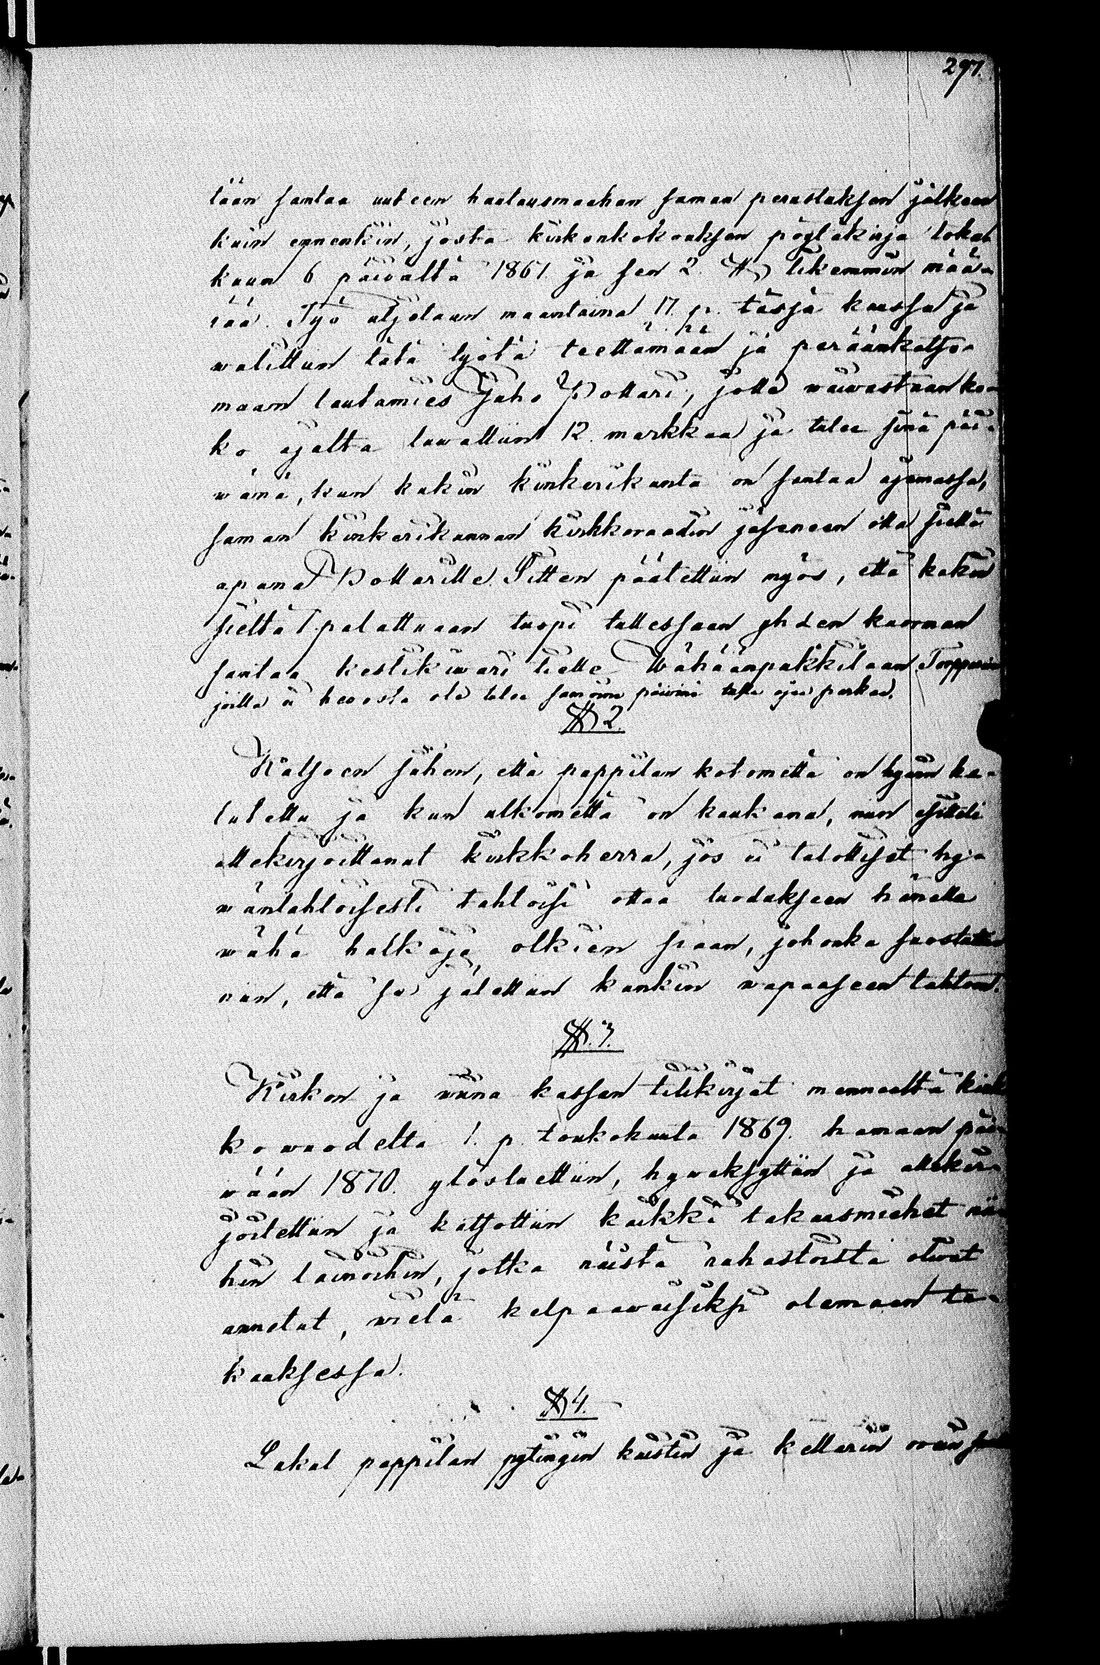 297.
tään santaa uuteen hautausmaahan saman perustuksen jälkeen
kuin ennenkin, josta kirkonkokouksen pöytäkirja loka
kuun 6 päivältä 1861 ja sen 2 § likemmin mää-
rää. Työ aljetaan maantaina 17. p. tässä kuussa ja
walittiin tätä työtä teettämään ja peräänkatso-
maan lautamies Juho Pottari, jolle waiwastaan ko-
ko ajalta luwattiin 12 markkaa ja tulee sinä päi-
wänä, kun kukin kinkerikunta on santaa ajamassa,
saman kinkerikunnan kirkkoraadin jäseneen olla siellä
apuna Pottarille. Sitten päätettiin myös, että kukin
sieltä palattuaan tuopi tullessaan yhden kuorman
santaa kestikiwari tielle Wähäänpakkilaan Torpparin
joilla ei hewosta ole tulee samoina päivinä
§ 2.
Katsoen siihen, että pappilan kotometsä on hywin ha-
kattu ja kun ulkometsä on kaukana, niin esitteli
allekirjoittanut kirkkoherra, jos ei talolliset hy-
wäntahtoisesti tahtoisi ottaa tuodakseen hänelle
wähä halkoja olkien siaan, johonka suostuttiin
niin, että se jätettiin kunkin wapaaseen tahtoon.
§. 3.
Kirkon ja waiwas kassan tilikirjat menneeltä kirk
kowuodelta 1. p. toukokuuta 1869 hamaan päi-
wään 1870 ylösluettiin, hywäksyttiin ja allekir-
joitettiin ja katsottiin kaikki takausmiehet nii-
hin lainoihin, jotka näistä rahastoista oliwat
annetut, wielä kelpaawaisiksi olemaan ta-
kauksessa.
§ 4.
Lukut pappilan pytingin kuistin ja kellarin owiin